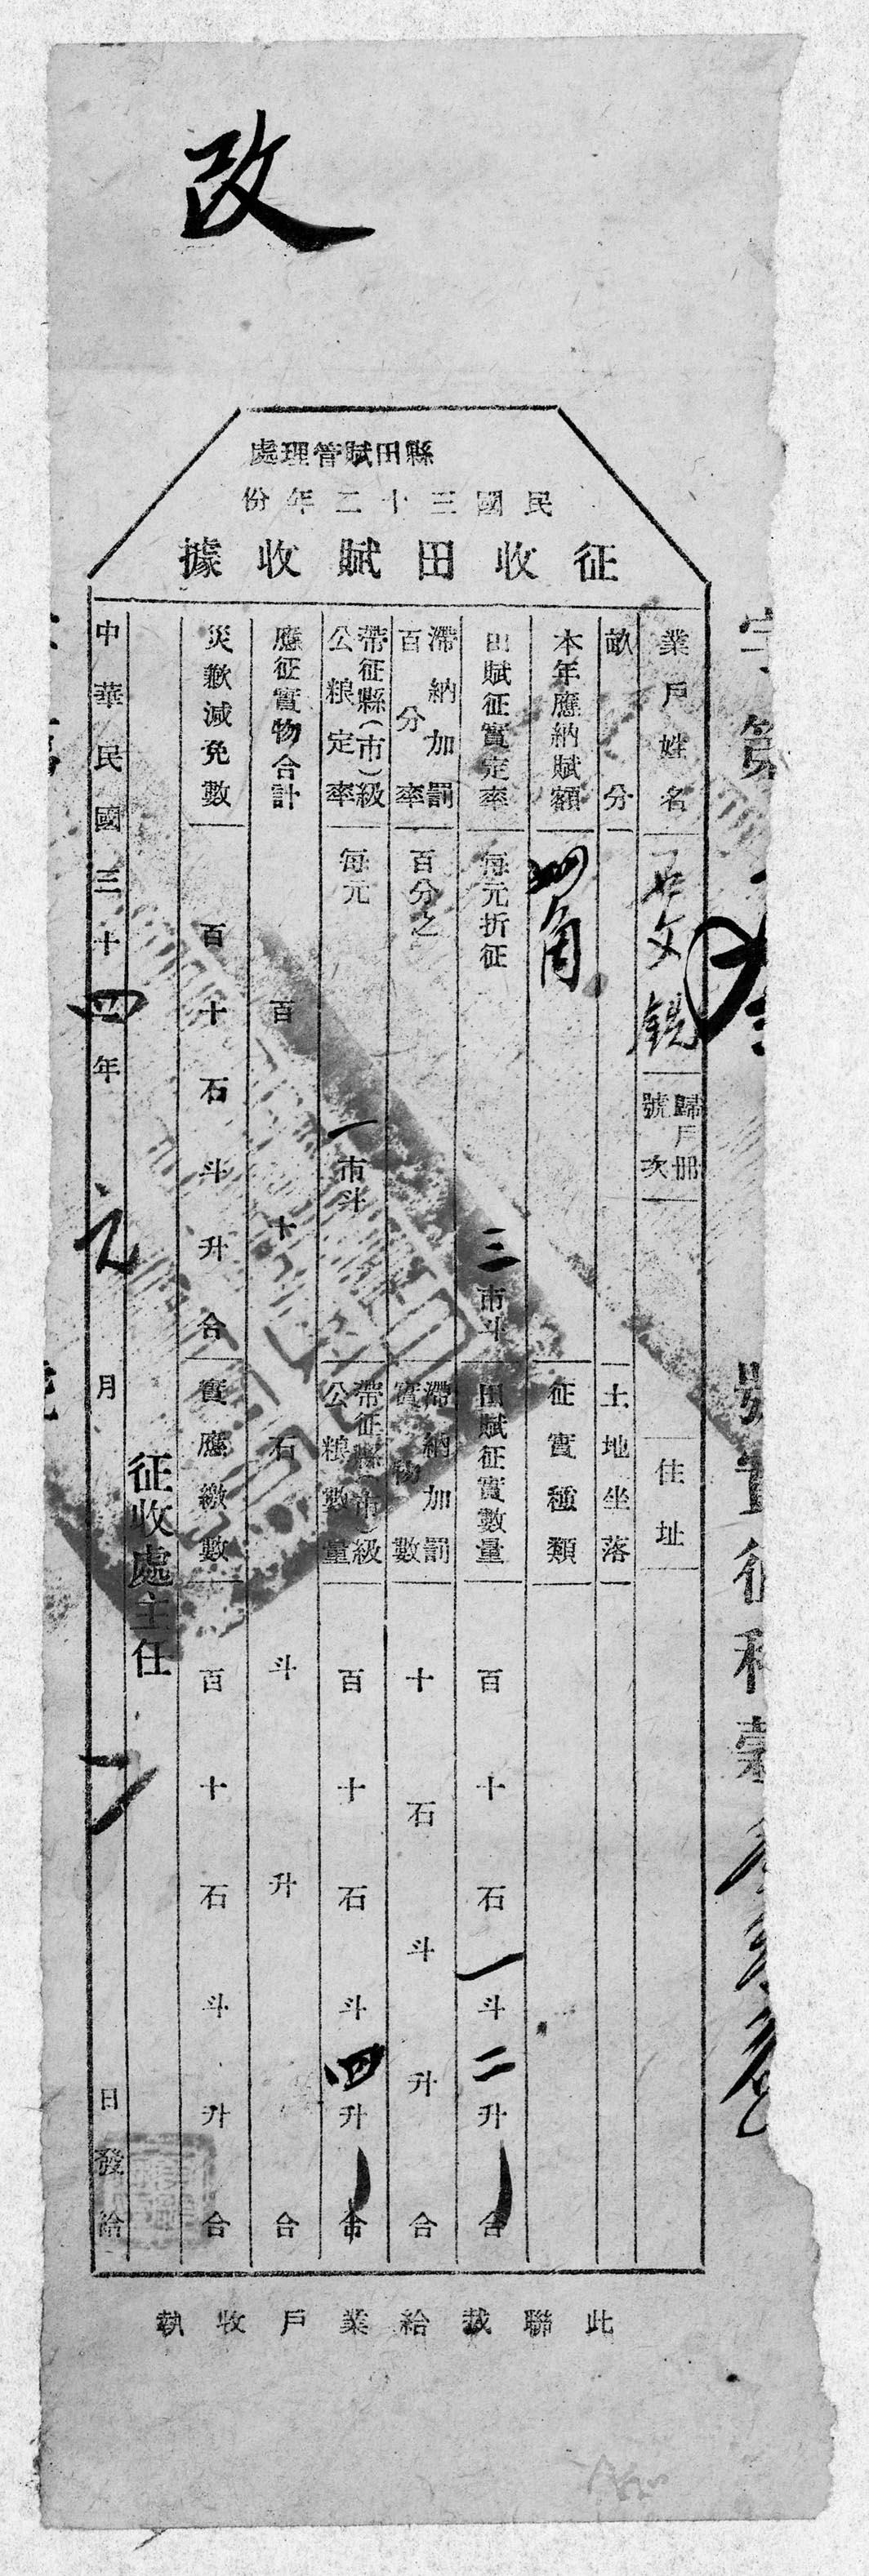 改
縣田賦管理處
民國三十二年份
征收田賦收據
字第
號實征稻穀
業戶姓名 文錫
歸戶冊號次
住址
畝分
土地坐落
本年應納賦額 四角
征實種類
田賦征實定率 每元折征 三市斗
田賦征實數量 百十石一斗二升合
滯納加罰百分率 百分之
滯納加罰實物數 十石斗升合
帶征縣(市)級公粮定率 每元 一市斗
帶征縣(市)級公粮數量 百十石斗四升合
應征實物合計 百十石斗升合
災歉減免數 百十石斗升合
實應繳數 百十石斗升合
征收處主任
中華民國三十四年元月 日發給
此聯裁給業戶收執